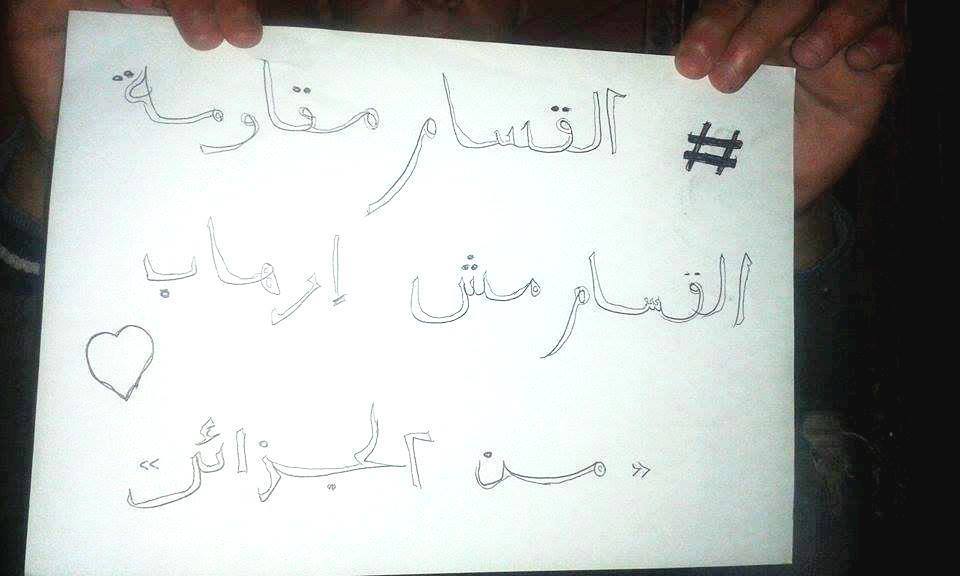 # القسام مقاومة
القسام مش إرهاب
« من الجزائر »